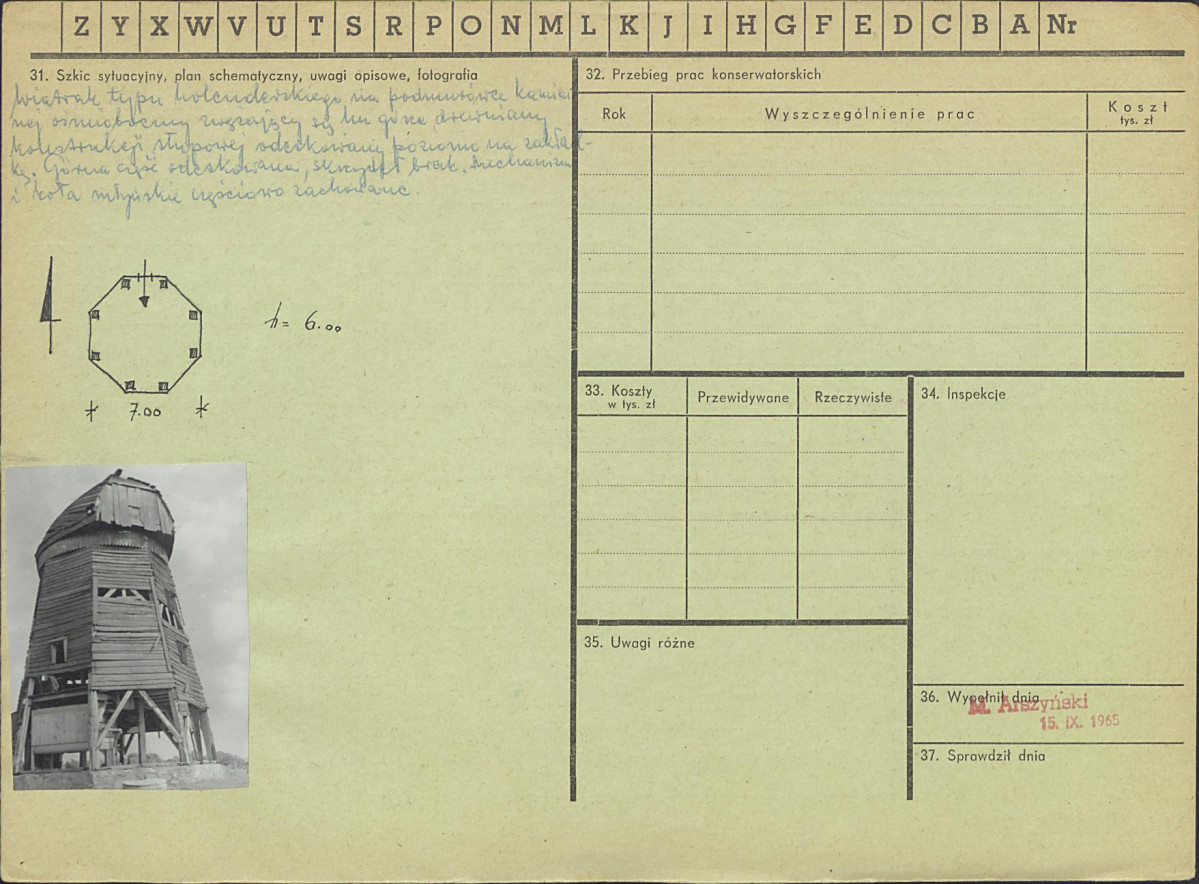 Z Y X W V U T S R P O N M L K J I H G F E D C B A Nr
31. Szkic sytuacyjny, plan schematyczny, uwagi opisowe, fotografia
Wiatrak typu holenderskiego, na podmurówce kamien
nej ośmioboczny zwężający się ku górze drewniany
konstrukcji słupowej odeskowany poziomo na zakład-
kę. Górna część odeskowana, skrzydeł brak. Mechanizm
i koła młyńskie częściowo zachowane.
h= 6.00
7.00
32. Przebieg prac konserwatorskich
Rok
Wyszczególnienie prac
Koszt
tys. zł
33. Koszty
w tys. zł
Przewidywane
Rzeczywiste
34. Inspekcje
35. Uwagi różne
36. Wypełnił dnia
M. Arszyński
15. IX. 1965
37. Sprawdził dnia